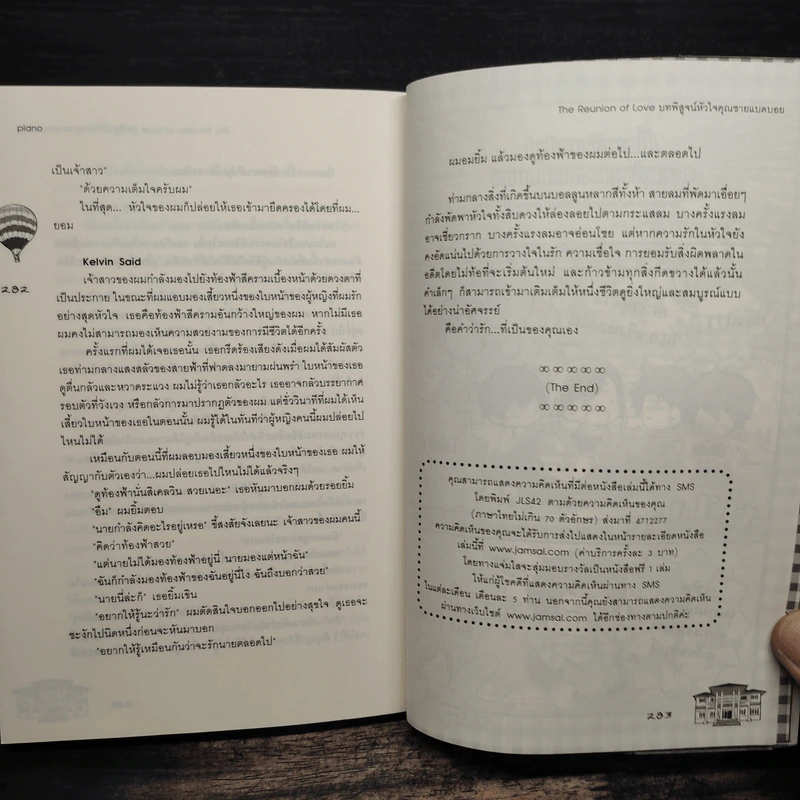 piano
เป็นเจ้าสาว"
"ด้วยความเต็มใจครับผม"
ในที่สุด... หัวใจของผมก็ปล่อยให้เธอเข้ามายึดครองได้โดยที่ผม...
ยอม
282
Kelvin Said
เจ้าสาวของผมกำลังมองไปยังท้องฟ้าสีครามเบื้องหน้าด้วยดวงตาที่
เป็นประกาย ในขณะที่ผมแอบมองเสี้ยวหนึ่งของใบหน้าของผู้หญิงที่ผมรัก
อย่างสุดหัวใจ เธอคือท้องฟ้าสีครามอันกว้างใหญ่ของผม หากไม่มีเธอ
ผมคงไม่สามารถมองเห็นความสวยงามของการมีชีวิตได้อีกครั้ง
ครั้งแรกที่ผมได้เจอเธอนั้น เธอกรีดร้องเสียงดังเมื่อผมได้สัมผัสตัว
เธอท่ามกลางแสงสลัวของสายฟ้าที่ฟาดลงมายามฝนพรำ ใบหน้าของเธอ
ดูตื่นกลัวและหวาดระแวง ผมไม่รู้ว่าเธอกลัวอะไร เธออาจกลัวบรรยากาศ
รอบตัวที่วังเวง หรือกลัวการมาปรากฏตัวของผม แต่ชั่ววินาทีที่ผมได้เห็น
เสี้ยวใบหน้าของเธอในตอนนั้น ผมรู้ได้ในทันทีว่าผู้หญิงคนนี้ผมปล่อยไป
ไหนไม่ได้
เหมือนกับตอนนี้ที่ผมลอบมองเสี้ยวหนึ่งของใบหน้าของเธอ ผมให้
สัญญากับตัวเองว่า...ผมปล่อยเธอไปไหนไม่ได้แล้วจริงๆ
"ดูท้องฟ้านั่นสิเคลวิน สวยเนอะ" เธอหันมาบอกผมด้วยรอยยิ้ม
"อืม" ผมยิ้มตอบ
"นายกำลังคิดอะไรอยู่เหรอ" ขี้สงสัยจังเลยนะ เจ้าสาวของผมคนนี้
"คิดว่าท้องฟ้าสวย"
"แต่นายไม่ได้มองท้องฟ้าอยู่นี่ นายมองแต่หน้าฉัน"
"ฉันก็กำลังมองท้องฟ้าของฉันอยู่นี่ไง ฉันถึงบอกว่าสวย"
"นายนี่ล่ะก็" เธอยิ้มเขิน
"อยากให้รู้นะว่ารัก" ผมตัดสินใจบอกออกไปอย่างสุขใจ ดูเธอจะ
ชะงักไปนิดหนึ่งก่อนจะหันมาบอก
"อยากให้รู้เหมือนกันว่าจะรักนายตลอดไป"
The Reunion of Love บทพิสูจน์หัวใจคุณชายแบดบอย
ผมอมยิ้ม แล้วมองดูท้องฟ้าของผมต่อไป...และตลอดไป
ท่ามกลางสิ่งที่เกิดขึ้นบนบอลลูนหลากสีทั้งห้า สายลมที่พัดมาเอื่อยๆ
กำลังพัดพาหัวใจทั้งสิบดวงให้ล่องลอยไปตามกระแสลม บางครั้งแรงลม
อาจเชี่ยวกราก บางครั้งแรงลมอาจอ่อนโชย แต่หากความรักในหัวใจยัง
คงอัดแน่นไปด้วยการวางใจในรัก ความเชื่อใจ การยอมรับสิ่งผิดพลาดใน
อดีตโดยไม่ท้อที่จะเริ่มต้นใหม่ และก้าวข้ามทุกสิ่งกีดขวางได้แล้วนั้น
คำเล็กๆ ก็สามารถเข้ามาเติมเต็มให้หนึ่งชีวิตดูยิ่งใหญ่และสมบูรณ์แบบ
ได้อย่างน่าอัศจรรย์
คือคำว่ารัก...ที่เป็นของคุณเอง
∞ ∞ ∞ ∞ ∞
(The End)
∞ ∞ ∞ ∞ ∞
คุณสามารถแสดงความคิดเห็นที่มีต่อหนังสือเล่มนี้ได้ทาง SMS
โดยพิมพ์ JLS42 ตามด้วยความคิดเห็นของคุณ
(ภาษาไทยไม่เกิน 70 ตัวอักษร) ส่งมาที่ 4712277
ความคิดเห็นของคุณจะได้รับการส่งไปแสดงในหน้ารายละเอียดหนังสือ
เล่มนี้ที่ www.jamsai.com (ค่าบริการครั้งละ 3 บาท)
โดยทางแจ่มใสจะสุ่มมอบรางวัลเป็นหนังสือฟรี 1 เล่ม
ให้แก่ผู้โชคดีที่แสดงความคิดเห็นผ่านทาง SMS
ในแต่ละเดือน เดือนละ 5 ท่าน นอกจากนี้คุณยังสามารถแสดงความคิดเห็น
ผ่านทางเว็บไซต์ www.jamsai.com ได้อีกช่องทางตามปกติค่ะ
283